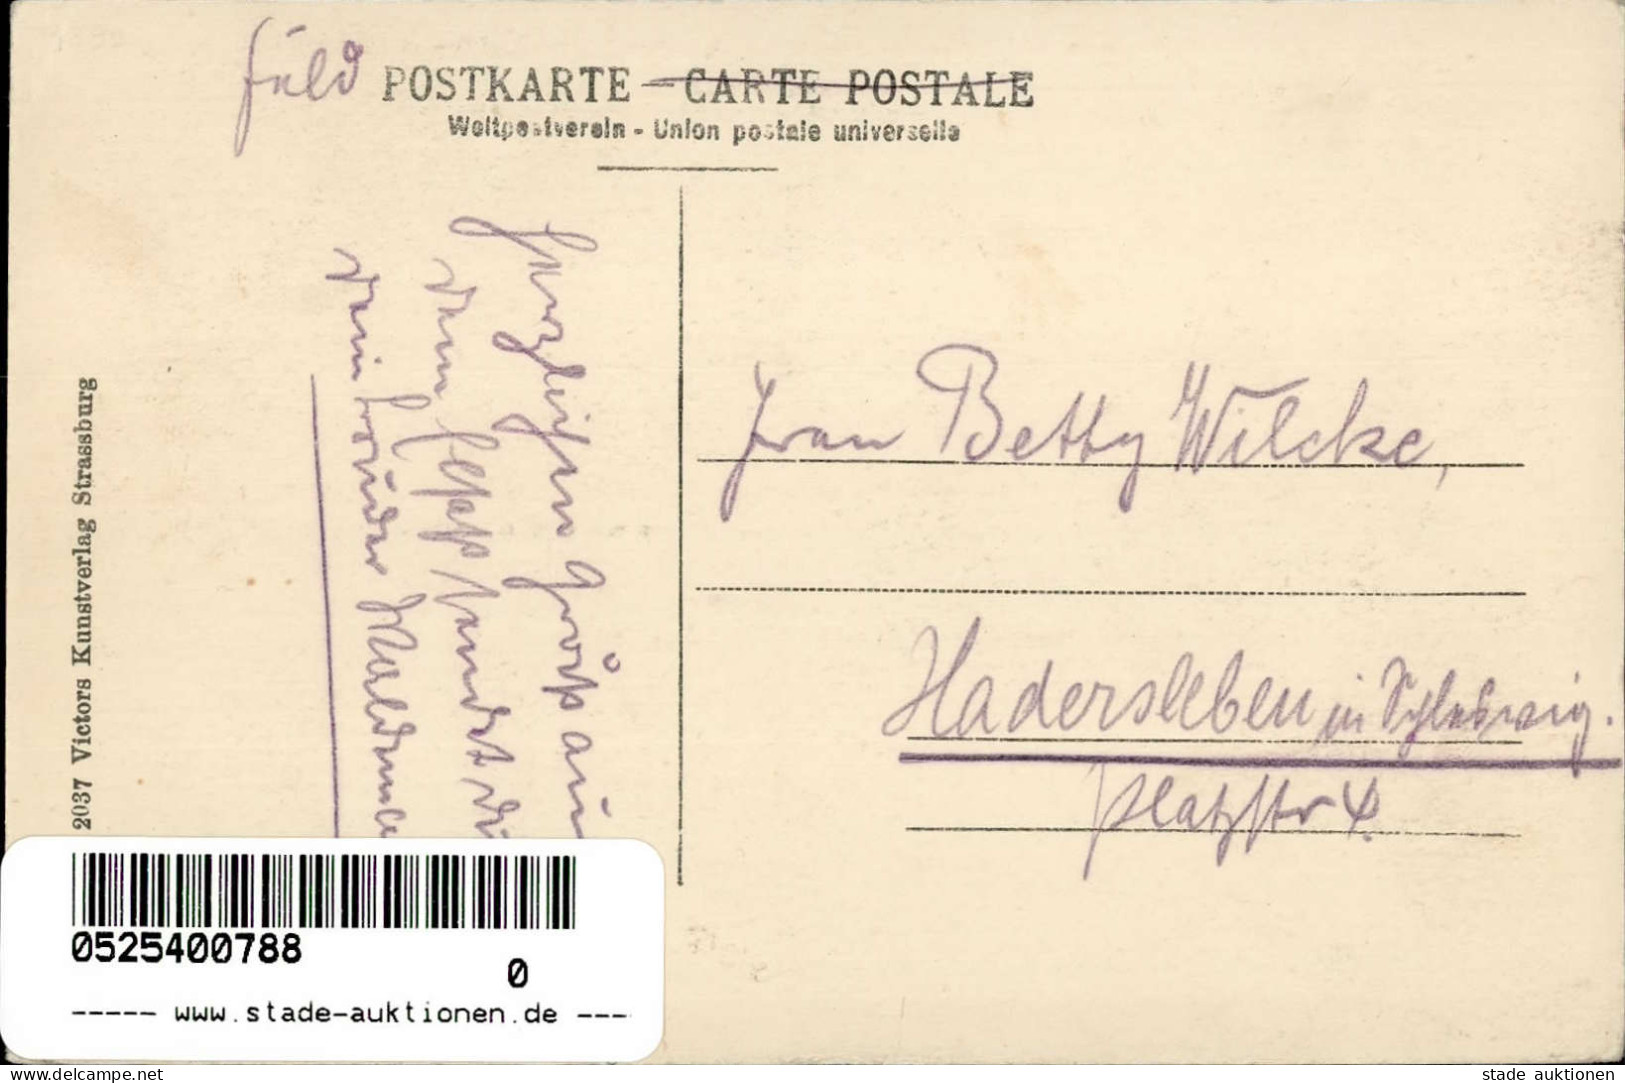 Feld POSTKARTE — CARTE POSTALE
Weltpostverein - Union postale universelle
Herzlichen Gruß aus
dem Elsaß sendet dir
dein Bruder Waldemar
Frau Betty Wilcke,
Hadersleben in Schleswig.
Platzstr 4.
2037 Victors Kunstverlag Strassburg
0525400788
0
----- www.stade-auktionen.de ---
www.delcampe.net
stade auktionen